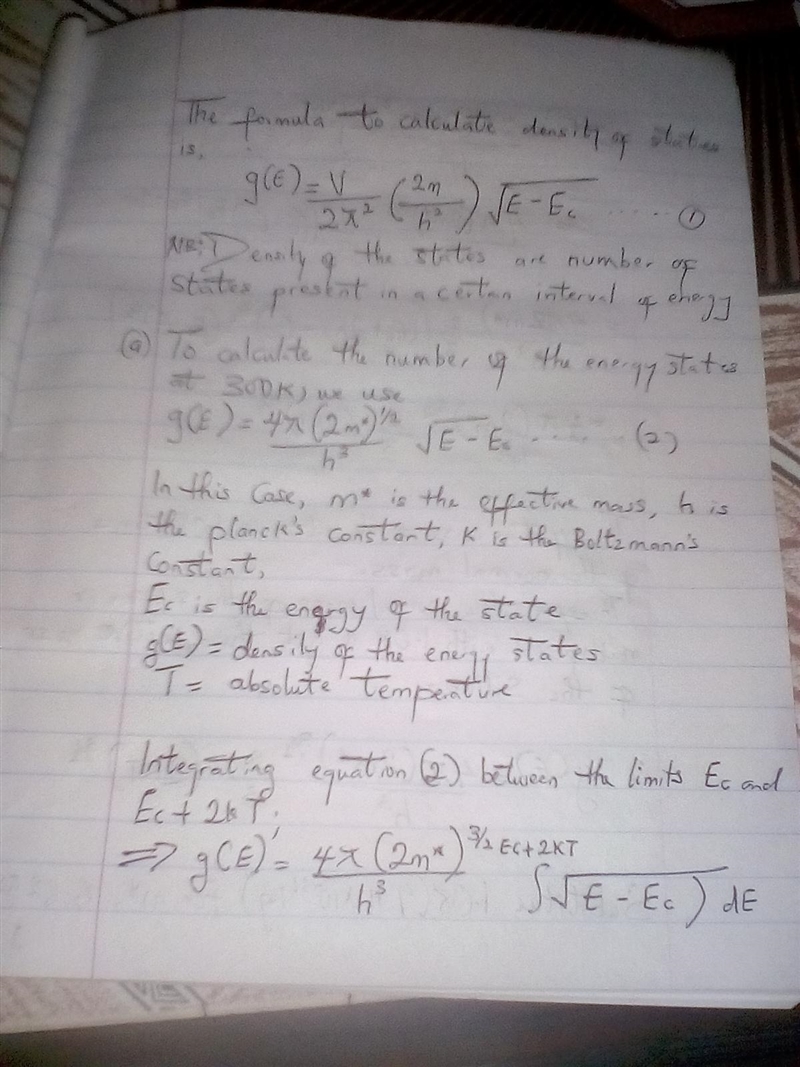 The formula to calculate density of states
is,
g(E) = V/2π² (2m/h²) √E - Ec ..... ①
NB: Density of the states are number of
states present in a certain interval of energy
(a) To calculate the number of the energy states
at 300K, we use
g(E) = 4π(2m*)^1/2/h³ √E - Ec ..... (2)
In this case, m* is the effective mass, h is
the planck's constant, K is the Boltzmann's
constant,
Ec is the energy of the state
g(E) = density of the energy states
T = absolute temperature
Integrating equation (2) between the limits Ec and
Ec + 2kT,
⇒ g(E)' = 4π(2m*)^3/2/h³ ∫^EC+2KT √E - Ec) dE